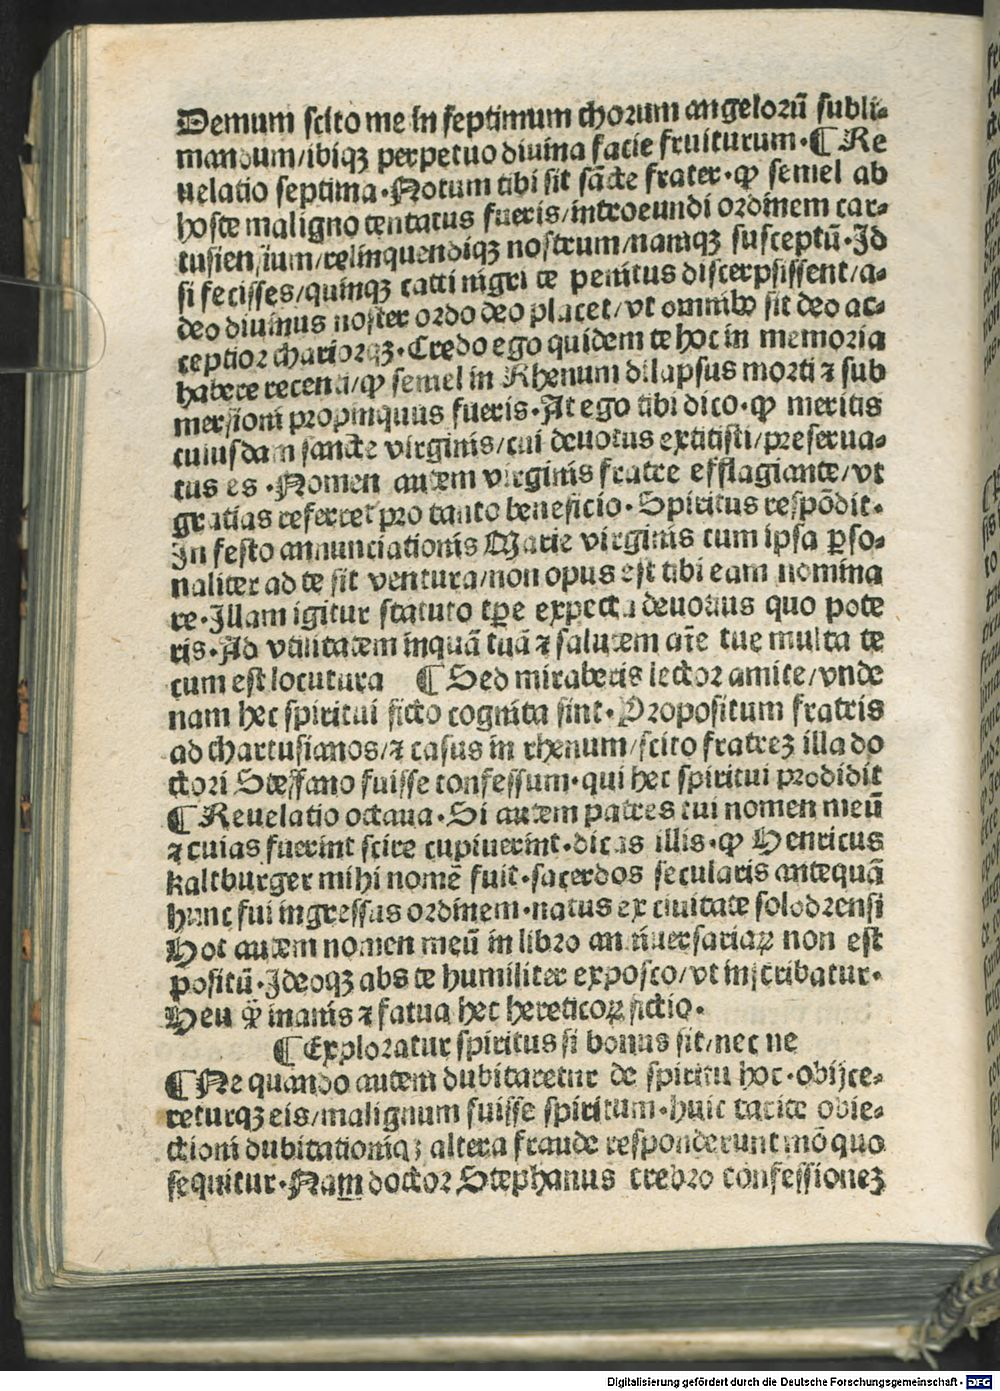 Demum scito me in septimum chorum angelorū subli-
mandum/ibiqꝫ perpetuo diuina facie fruiturum. ¶ Re
uelatio septima. Notum tibi sit sācte frater. ꝙ semel ab
hoste maligno tentatus fueris/introeundi ordinem car-
tusiensium/relinquendiqꝫ nostrum/namqꝫ susceptū. Id
si fecisses/quinqꝫ catti nigri te penitus discerpsissent/a-
deo diuinus noster ordo deo placet/vt omnibꝰ sit deo ac-
ceptior chariorqꝫ. Credo ego quidem te hoc in memoria
habere recenti/ꝙ semel in Rhenum dilapsus morti ⁊ sub
mersioni propinquus fueris. At ego tibi dico. ꝙ meritis
cuiusdam sancte virginis/cui deuotus extitisti/preserua-
tus es. Nomen autem virginis fratre efflagiante/vt
gratias referret pro tanto beneficio. Spiritus respōdit.
In festo annunciationis Marie virginis cum ipsa ꝑso-
naliter ad te sit ventura/non opus est tibi eam nomina
re. Illam igitur statuto tp̄e expecta deuotius quo pote
ris. Ad vtilitatem inquā tuā ⁊ salutem aīe tue multa te
cum est locutura ¶ Sed miraberis lector amice/vnde
nam hec spiritui ficto cognita sint. Propositum fratris
ad chartusianos/⁊ casus in rhenum/scito fratreꝫ illa do
ctori Steffano fuisse confessum. qui hec spiritui prodidit
¶ Reuelatio octaua. Si autem patres tui nomen meū
⁊ cuias fuerint scire cupiuerint. dicas illis. ꝙ Henricus
kaltburger mihi nomē fuit. sacerdos secularis antequā
hunc fui ingressus ordinem. natus ex ciuitate solodrensi
Hoc autem nomen meū in libro anniuersariaꝝ non est
positū. Ideoqꝫ abs te humiliter exposco/vt inscribatur.
Heu ꝙ̄ inanis ⁊ fatua hec hereticoꝝ fictio.
¶ Exploratur spiritus si bonus sit/nec ne
¶ Ne quando autem dubitaretur de spiritu hoc. obijce-
returqꝫ eis/malignum fuisse spiritum. huic tacite obie-
ctioni dubitationiqꝫ altera fraude responderunt mō quo
sequitur. Nam doctor Stephanus crebro confessioneꝫ
Digitalisierung gefördert durch die Deutsche Forschungsgemeinschaft - DFG